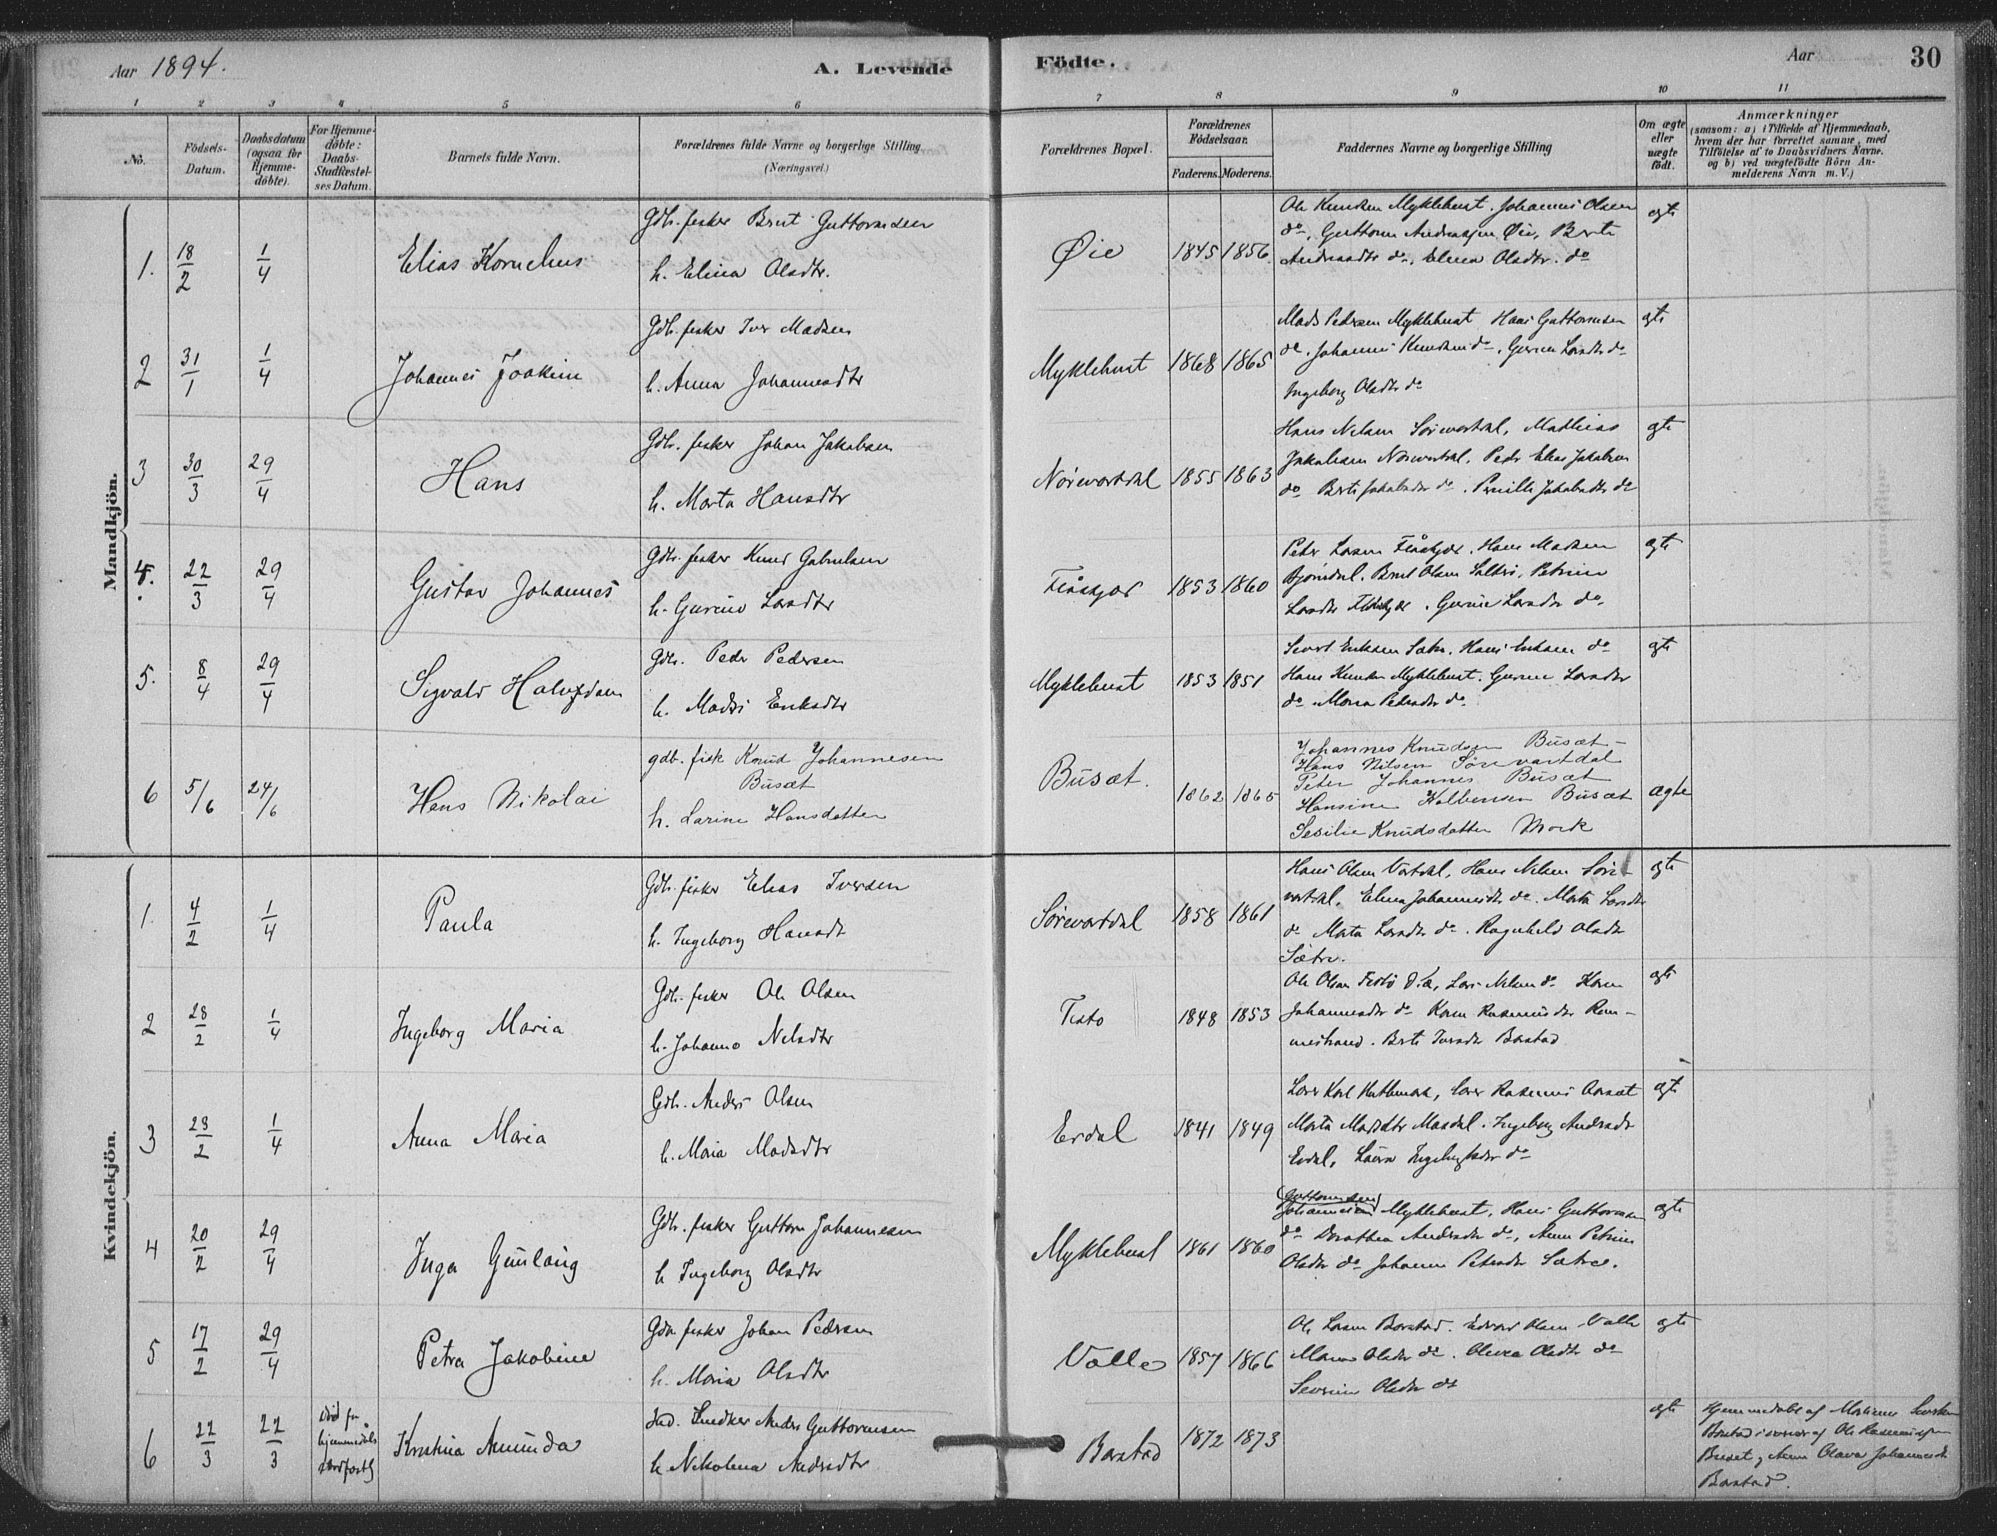 Aar 1894.
A. Levende
Födte.
Aar
30
1 2 3 4 5 6 7 8 9 10 11
No.
Födsels-Datum.
Daabsdatum (ogsaa for Hjemme-döbte).
For Hjemme-döbte: Daabs-Stadfæstel-ses Datum.
Barnets fulde Navn.
Forældrenes fulde Navne og borgerlige Stilling (Næringsvei.)
Forældrenes Bopæl.
Forældrenes Födselsaar.
Faderens. Moderens.
Faddernes Navne og borgerlige Stilling
Om ægte eller uægte födt.
Anmærkninger
(saasom: a) i Tilfælde af Hjemmedaab,
hvem der har forrettet samme, med
Tilföielse af to Daabsvidners Navne.
og b) ved uægtefödte Börn An-
melderens Navn m. V.)
Mandkjön.
1. 18/2 1/4 Elias Kornelius
Gdb. fisker Brut Guttormsen
h. Elina Olsdtr.
Øie 1845 1856
Ole Knudsen Myklebust. Johannes Olsen
do, Guttorm Andreassen Øie, Berte
Andreasdtr do, Elina Olsdtr. do
egte
2 31/1 1/4 Johannes Joakim
Gdb. fisker Iver Madsen
h. Anna Johannesdtr
Myklebust 1868 1865
Mads Pedersen Myklebust Hans Guttormsen
do. Johannes Knudsen do, Gurine Larsdtr do
Ingeborg Olsdtr do
egte
3 30/3 29/4 Hans
Gdb. fisker Johan Jakobsen
h. Marta Hansdtr
Nörevartdal 1855 1863
Hans Nelsen Sörevartdal, Mathias
Jakobsen Nörevartdal, Peder Elias Jakobsen
do Berte Jakobsdtr do. Pernille Jakobsdtr do
egte
4. 22/3 29/4 Gustav Johannes
Gdb. fisker Knud Gabrielsen
h. Gurine Larsdtr
Flåskjær 1853 1860
Peter Larsen Flåskjær, Hans Madsen
Bjørndal. Brut Olsen Saltre, Petrine
Larsdtr Flåskjær. Gurine Larsdtr do.
egte
5. 8/4 29/4 Sigvald Halvfdan
Gdb. Peder Pedersen
h. Madsi Eriksdtr
Myklebust 1853 1851
Sivert Eriksen Sætre. Hans Eriksen do
Hans Knudsen Myklebust. Gurine Larsdtr
do Maria Petersdtr do.
egte
6 5/6 24/6 Hans Nikolai
gdb. fisk Knud Johannesen
Busæt
h. Larine Hansdatter
Busæt. 1862 1865
Johannes Knudsen Busæt-
Hans Nilsen Sörevartdal
Peter Johannes Busæt
Hansine Kolbensen Busæt
Sesilie Knudsdatter Mork
Ægte
Kvindekjön.
1. 4/2 1/4 Paula
Gdb. fisker Elias Iversen
h. Ingeborg Hansdtr
Sörevartdal 1858 1861
Hans Olsen Vartdal, Hans Nilsen Söre-
vartdal, Elina Johannesdtr do. Marta Larsdtr
do Marta Larsdtr do. Ragnhild Olsdtr
Sætre.
egte
2 28/2 1/4 Ingeborg Maria
Gdb. fisker Ole Olsen
h. Johanne Nelsdtr
Festö 1848 1853
Ole Olsen Festö, Lars Nelsen do Karen
Johannesdtr do Karen Rasmusdtr Rem-
mestrand. Berte Iversdtr Barstad
egte
3 23/2 1/4 Anna Maria
Gdb. Anders Olsen
h. Maria Madsdtr
Erdal 1841 1849
Marta Madsdtr Masdal. Ingeborg Andersdtr
Erdal, Laura do
egte
4 20/2 29/4 Inga Gunlaug
Gdb. fisker Guttorm Johannesen
h Ingeborg Olsdtr
Myklebust 1861 1860
(Guttormsen)
Johannesen Myklebust, Hans Guttormsen
do Dorothea Andersdtr do, Anne Petrine
Olsdtr do Johanne Petersdtr Sætre.
egte
5 17/2 29/4 Petra Jakobine
Gdb fisker Johan Pedersen
h. Maria Olsdtr
Valle 1857 1866
Ole Larsen Barstad. Edvard Olsen Valle
Maria Olsdtr do. Olivia Olsdtr do
Severine Olsdtr do
egte
6 22/3 22/3 död för hjemmedåb stadfestig
Kristina Amunda
Ind. Snedker Anders Guttormsen
h Nekolina Andersdtr
Barstad 1872 1873
egte
Hjemmedöbt af
Barstad i nærvær af Ole Rasmussen
Busæt og Anne Olava Johannesdtr
Barstad.